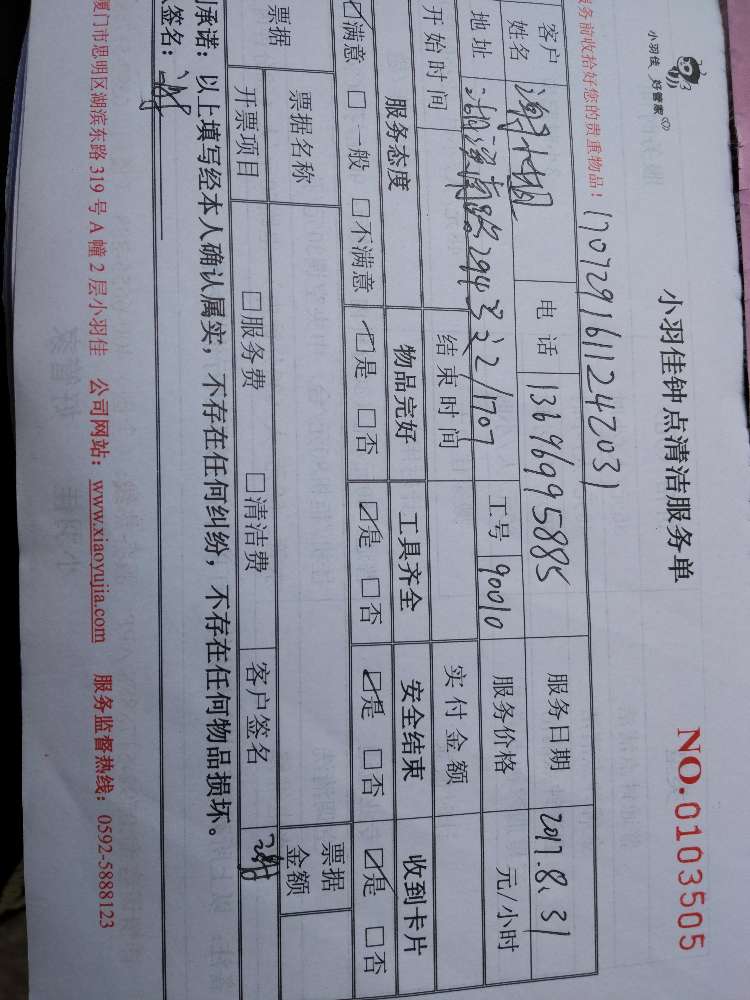 小羽佳 好管家
小羽佳钟点清洁服务单
NO.0103505
务前收拾好您的贵重物品! 1707291611242031
客户姓名 谢小姐 电话 13696995885 服务日期 2017.8.31
地址 湖滨南路294号之2/1707 工号 90010 服务价格 元/小时
开始时间 结束时间 实付金额
服务态度 物品完好 工具齐全 安全结束 收到卡片
☑满意 □一般 □不满意 ☑是 □否 ☑是 □否 ☑是 □否 ☑是 □否
票据 票据名称 票据金额
开票项目 □服务费 □清洁费 客户签名 谢
承诺:以上填写经本人确认属实,不存在任何纠纷,不存在任何物品损坏。
签名: 谢
厦门市思明区湖滨东路 319 号 A 幢 2 层小羽佳 公司网站:www.xiaoyujia.com 服务监督热线:0592-5888123